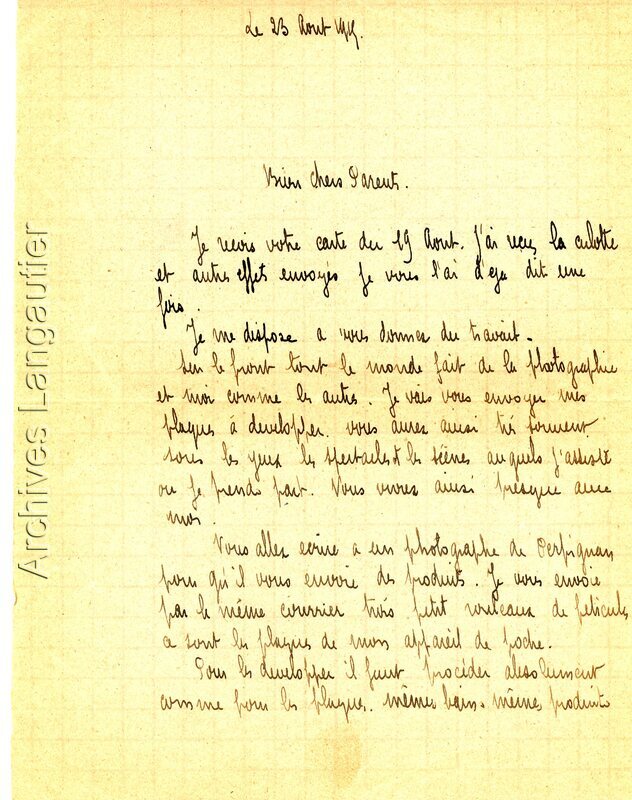 Le 23 Aout 1915.
Bien chers Parents.
Je reçois votre carte du 19 Aout. J'ai reçu la culotte
et autres effets envoyés je vous l'ai deja dit une
fois.
Je me dispose a vous donner du travail.
Sur le front tout le monde fait de la photographie
et moi comme les autres. Je vais vous envoyer mes
plaques à developper. vous aurez ainsi très souvent
sous les yeux les spectacles & les scènes auquels j'assiste
ou je prends part. Vous vivrez ainsi presque avec
moi.
Vous allez ecrire a un photographe de Perpignan
pour qu'il vous envoie des produits. Je vous envoie
par le même courrier trois petit rouleaux de pelicules
ce sont les plaques de mon appareil de poche.
Pour les developper il faut procéder absolument
comme pour les plaques. mêmes bains. mêmes produits
Archives Langautier